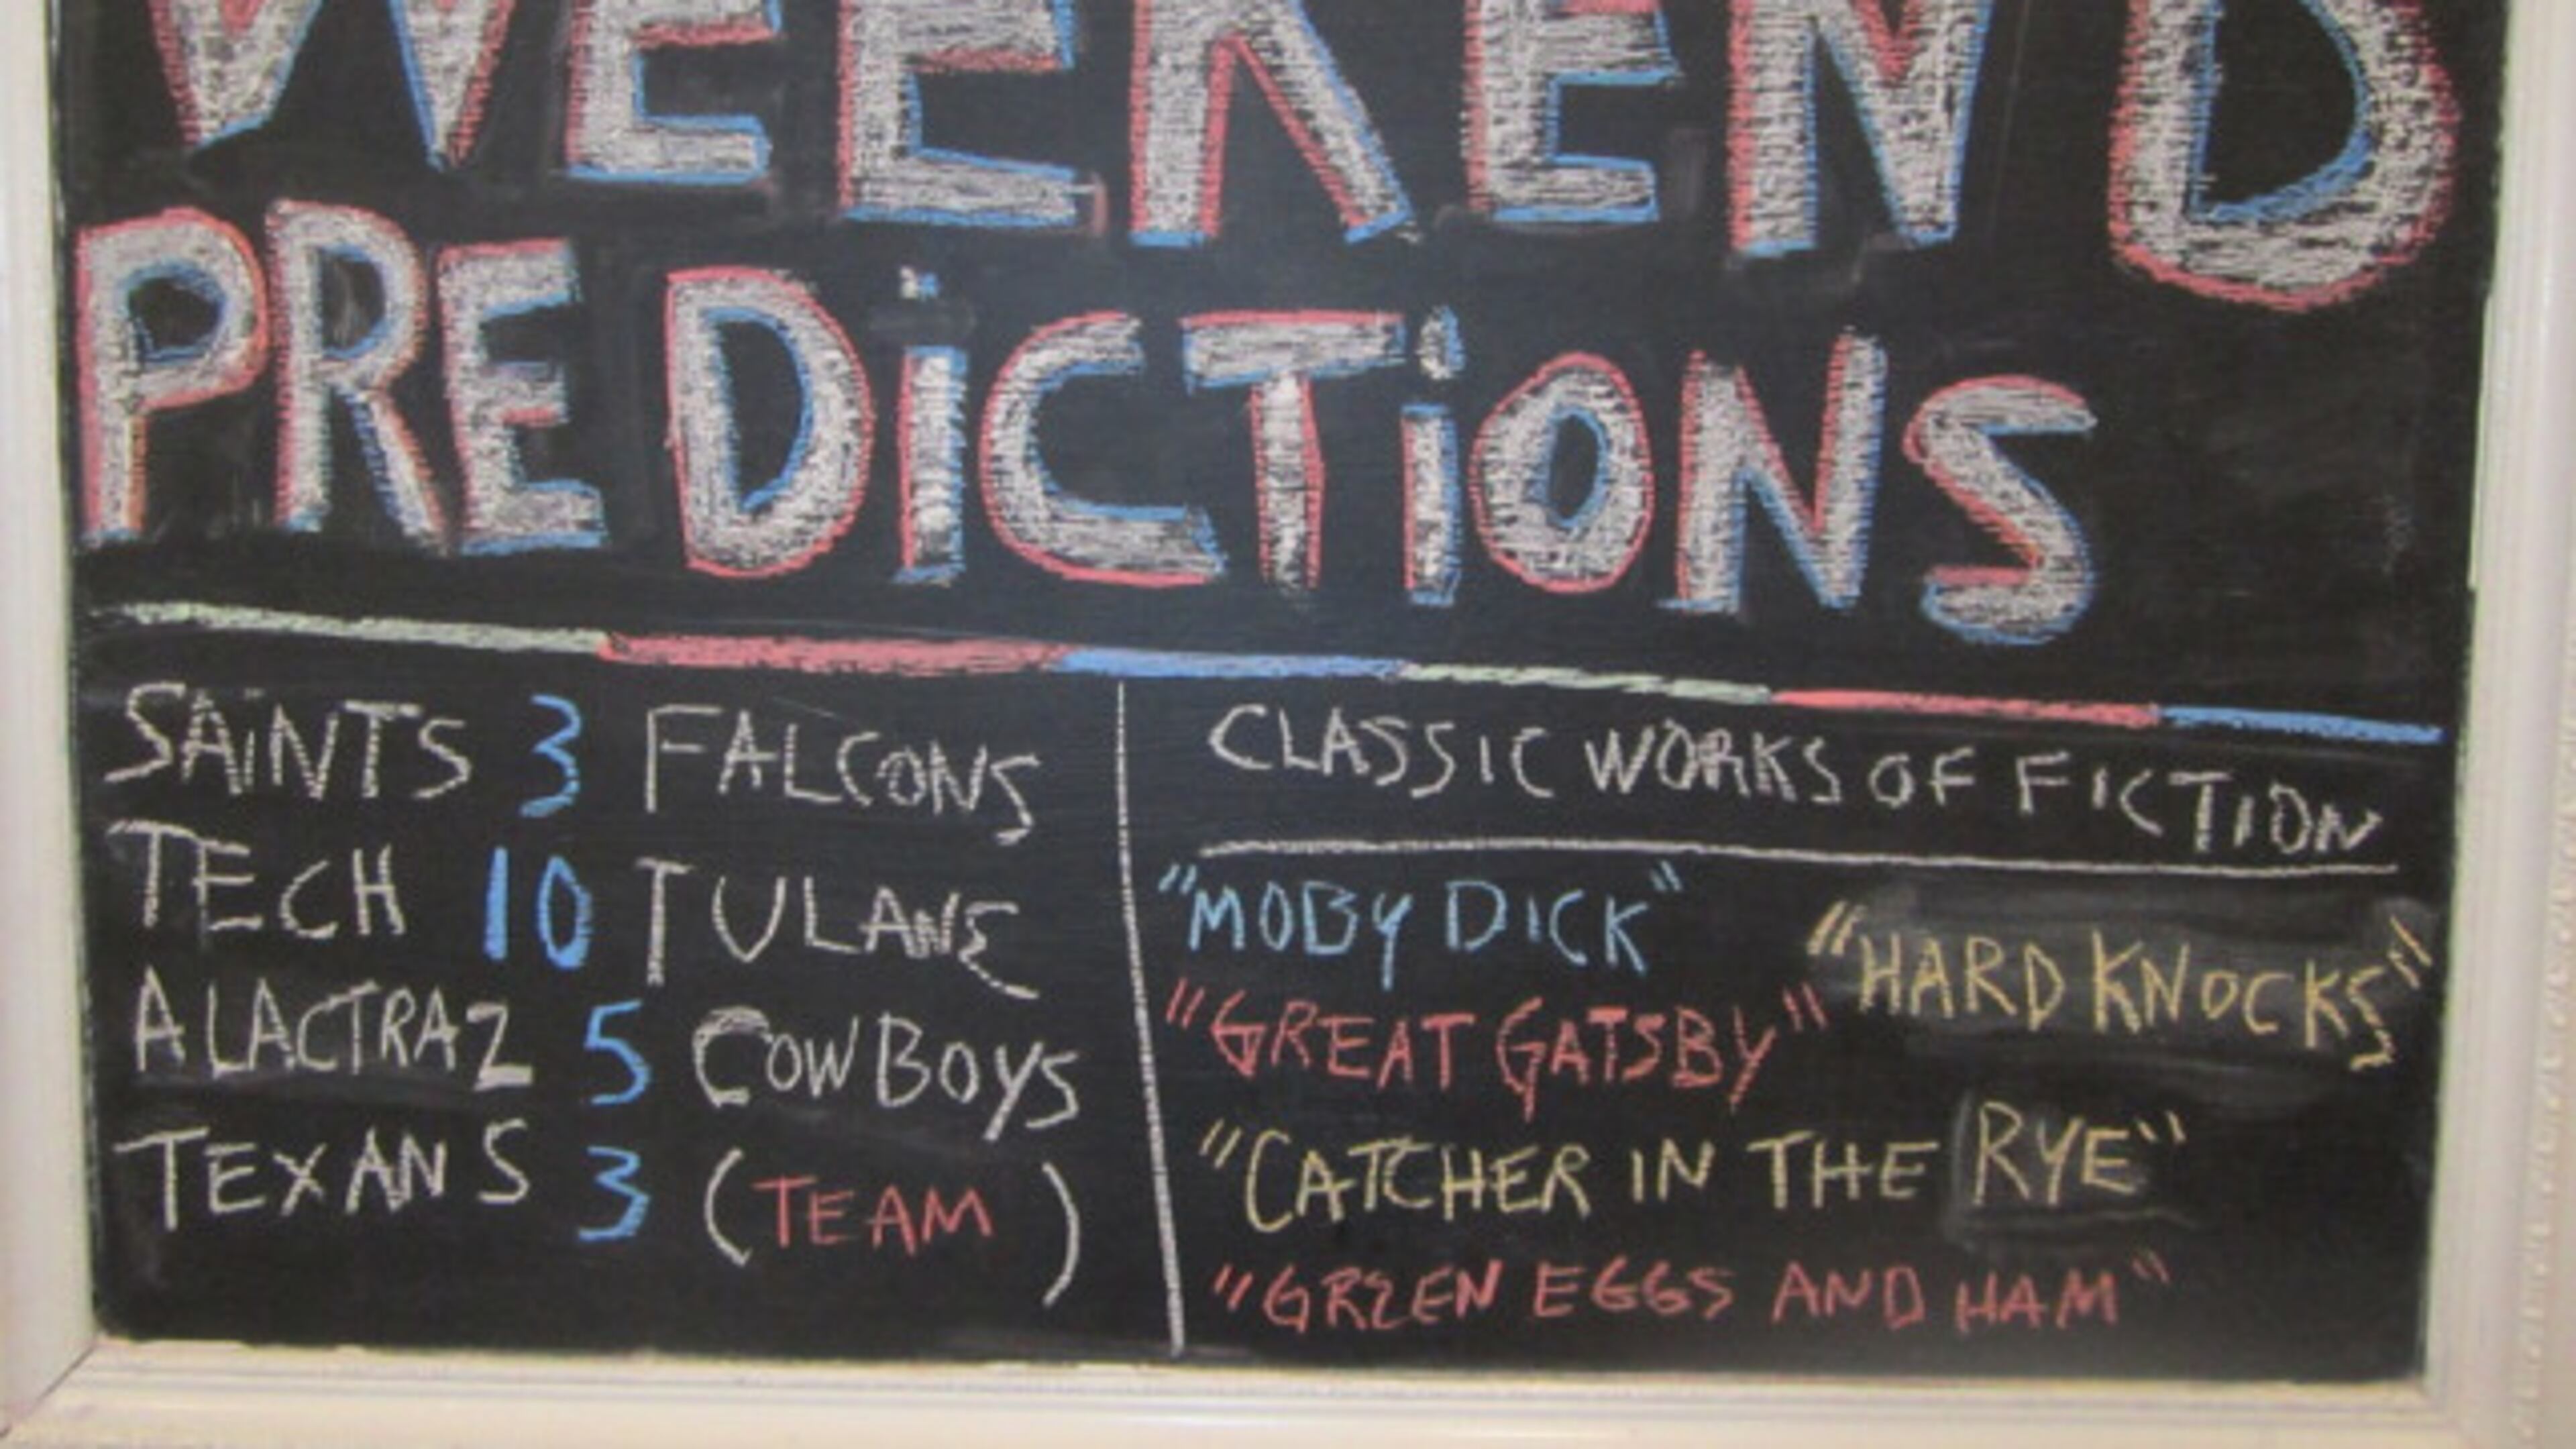 WEEKEND
PREDiCTiONS
SAiNTS 3 FALCONS
TECH 10 TULANE
ALACTRAZ 5 COWBOYS
TEXANS 3 (TEAM)
CLASSIC WORKS OF FICTION
"MOBY DICK"
"HARD KNOCKS"
"GREAT GATSBY"
"CATCHER IN THE RYE"
"GREEN EGGS AND HAM"